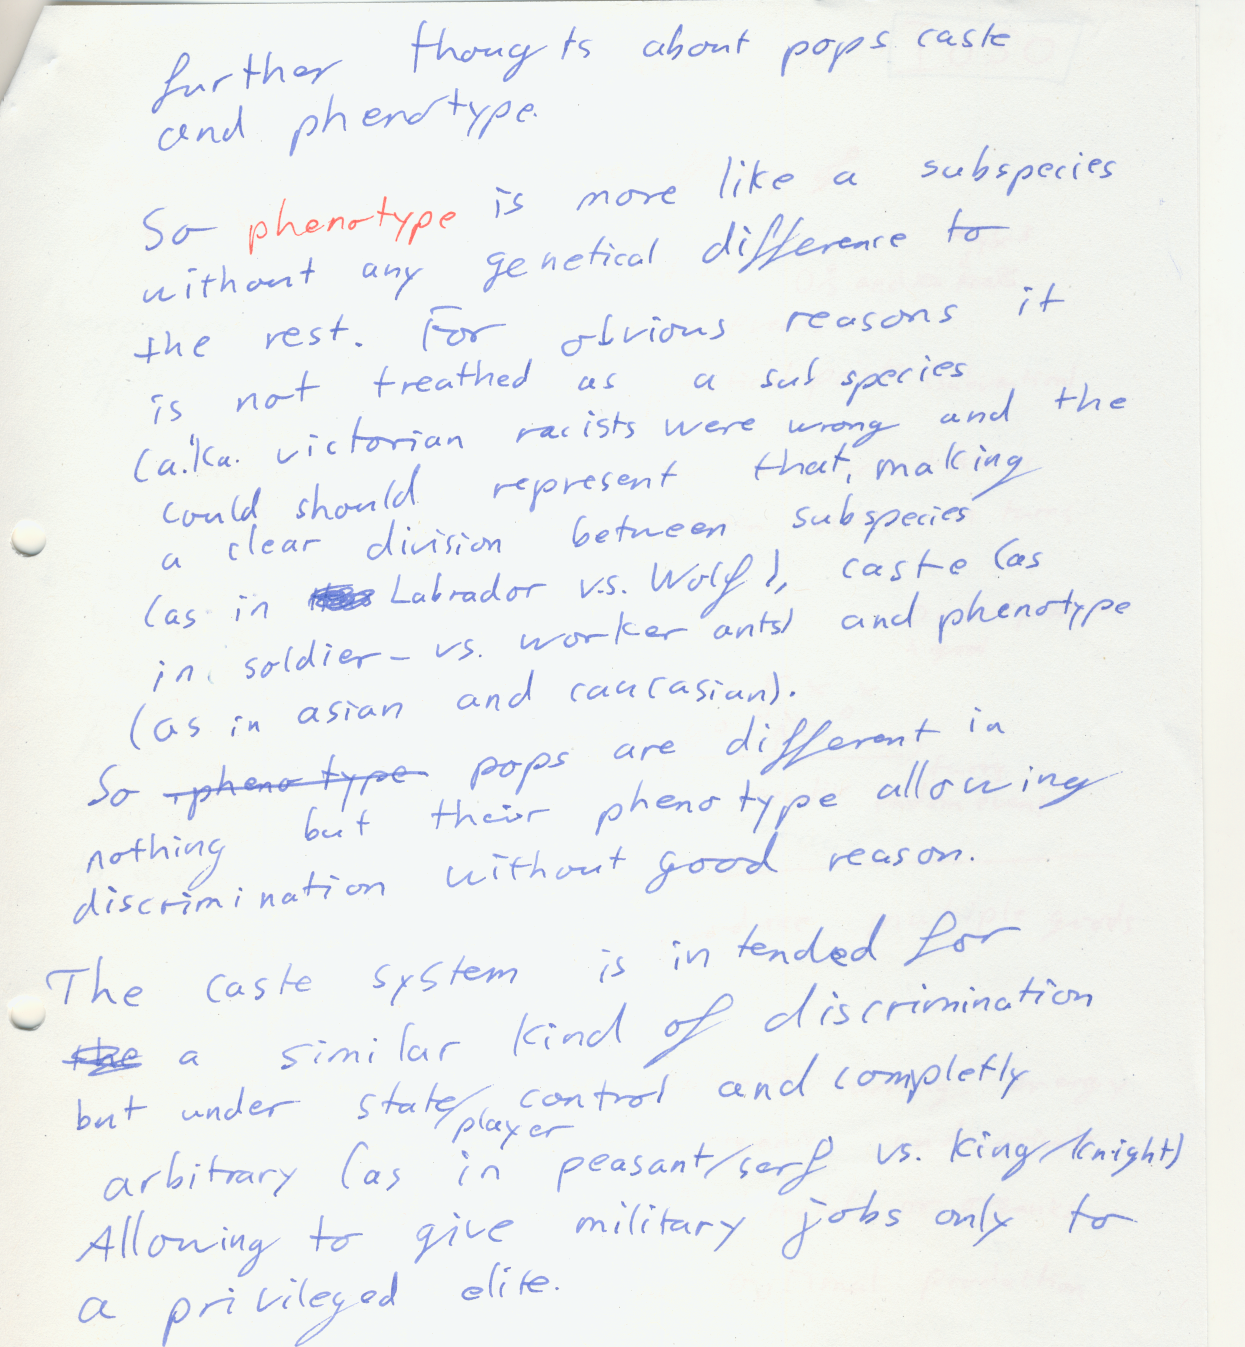 further thougts about pops caste
and phenotype.
So phenotype is more like a subspecies
without any genetical difference to
the rest. For obvious reasons it
is not treathed as a sub species
(a.k.a. victorian racists were wrong and the
could should represent that, making
a clear division between subspecies
(as in Labrador v.s. Wolf), caste (as
in soldier- vs. worker ants) and phenotype
(as in asian and caucasian).
So phenotype pops are different in
nothing but their phenotype allowing
discrimination without good reason.
The caste system is intended for
the a similar kind of discrimination
but under state/player control and completly
arbitrary (as in peasant/serf vs. king/knight)
Allowing to give military jobs only to
a privileged elite.